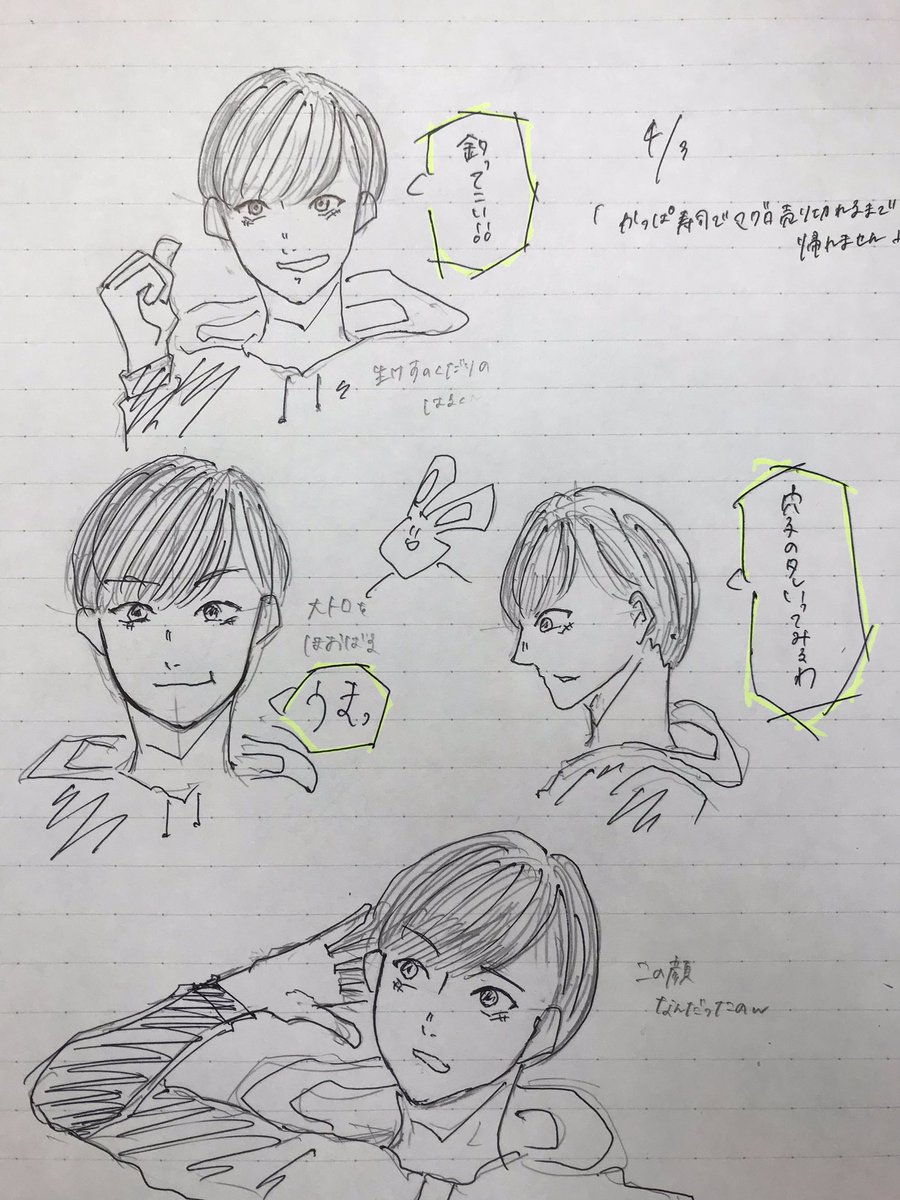 4/3
「かっぱ寿司でマグロ売り切れるまで
帰れません」
釣ってこい!!
生けすのくだりの
はるくん
大トロを
ほおばる
うまっ
穴子のタレいってみるわ
この顔
なんだったのw